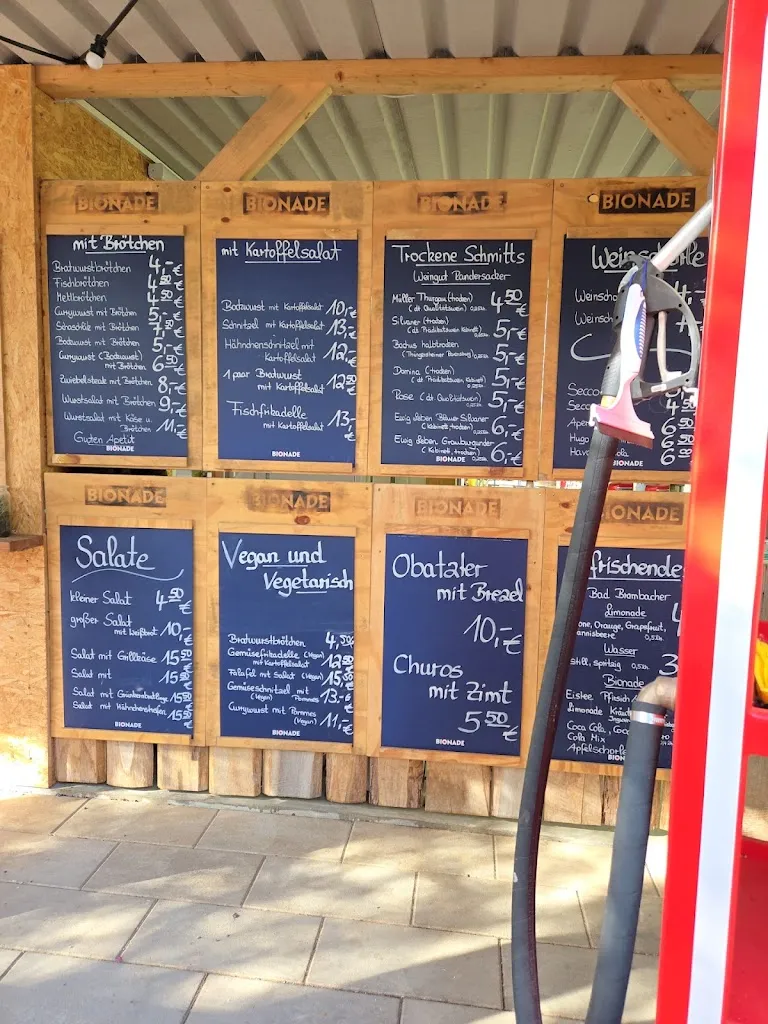 BIONADE
mit Brötchen
Bratwurstbrötchen 4,-€
Fischbrötchen 4,50€
Mettbrötchen 4,50€
Currywurst mit Brötchen 5,-€
Schaschlik mit Brötchen 7,-€
Bockwurst mit Brötchen 5,-€
Currywurst (Bockwurst)
mit Brötchen 6,50€
Zwiebelsteak mit Brötchen 8,-€
Wurstsalat mit Brötchen 9,-€
Wurstsalat mit Käse u.
Brötchen 11,-€
Guten Apetit
BIONADE
BIONADE
mit Kartoffelsalat
Bockwurst mit Kartoffelsalat 10,-€
Schnitzel mit Kartoffelsalat 13,-€
Hähnchenschnitzel mit
Kartoffelsalat 12,-€
1 paar Bratwurst
mit Kartoffelsalat 12,50€
Fischfrikadelle
mit Kartoffelsalat 13,-€
BIONADE
BIONADE
Trockene Schmitts
Weingut Randersacker
Müller Thurgau (trocken)
(dt. Qualitätswein) 0,25ltr. 4,50€
Silvaner (trocken)
(dt. Prädikatswein Kabinett) 5,-€
Bachus halbtrocken
5,-€
Domina (trocken)
(dt. Prädikatswein, Kabinett) 5,-€
Rose (dt. Qualitätswein) 5,-€
Ewig Leben Blauer Silvaner
(Kabinett, trocken) 6,-€
Ewig Leben Grauburgunder
(Kabinett, trocken) 6,-€
BIONADE
BIONADE
Weinschorle
Weinscho
Weinsch
Secco
Secc
Aper
Hugo
Hav
BIONADE
BIONADE
Salate
kleiner Salat 4,50€
großer Salat
mit Weißbrot 10,-€
Salat mit Grillkäse 15,50€
Salat mit 15,50€
Salat mit 15,50€
Salat mit Hähnchenstreifen 15,50€
BIONADE
BIONADE
Vegan und
Vegetarisch
Bratwurstbrötchen 4,50€
Gemüsefrikadelle (Vegan)
mit Kartoffelsalat 12,50€
Falafel mit Salat (Vegan) 15,50€
Gemüseschnitzel mit
(Vegan) Pommes 13,-€
Currywurst mit Pommes
(Vegan) 11,-€
BIONADE
BIONADE
Obatzter
mit Brezel
10,-€
Churos
mit Zimt
5,50€
BIONADE
BIONADE
frischende
Bad Brambacher
Limonade
one, Orange, Grapefruit,
annisbeere 0,5ltr.
Wasser
still, spritzig 0,5ltr. 3
Bionade
Eistee Pfirsich
Limonade Kräu
Coca Cola, Coc
Cola Mix
Apfelschorle
BION